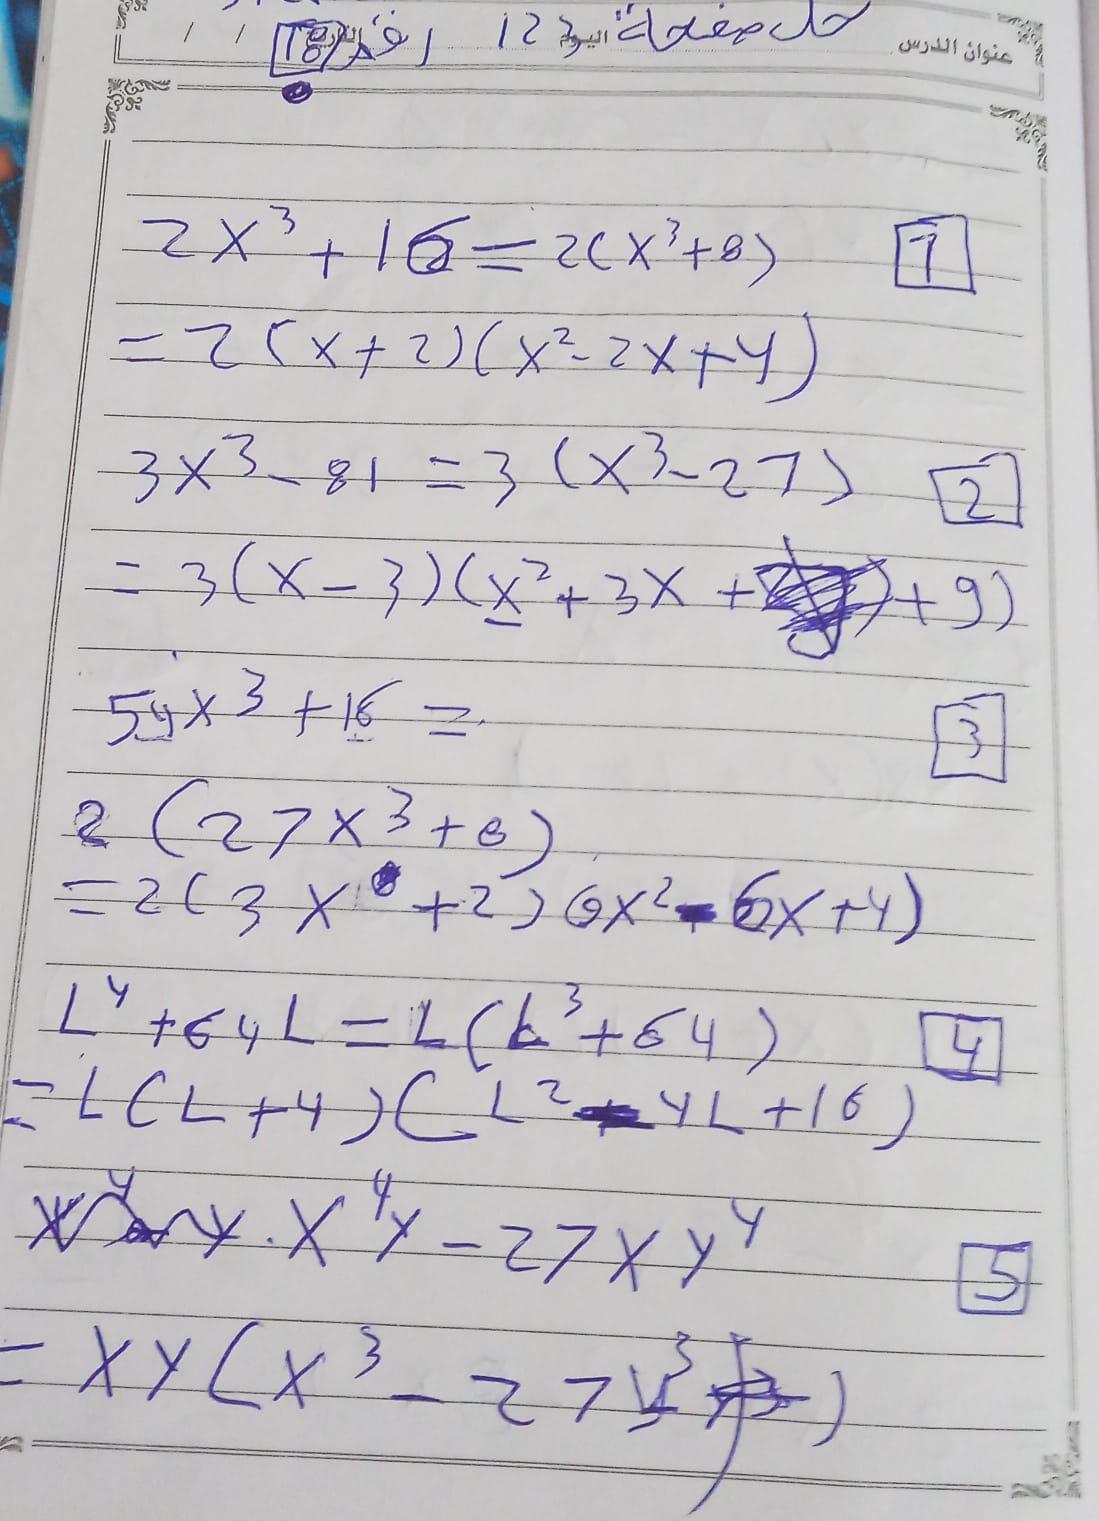 حل صفحة 123 رقم 18
عنوان الدرس اليوم التاريخ / /
2x³ + 16 = 2(x³+8) 1
= 2(x+2)(x²-2x+4)
3x³ - 81 = 3(x³-27) 2
= 3(x-3)(x²+3x+9)
54x³ + 16 = 3
2(27x³+8)
= 2(3x+2)6x²-6x+4)
L⁴+64L = L(L³+64) 4
= L(L+4)(L²-4L+16)
x⁴y - 27xy⁴ 5
= xy(x³ - 27y³)